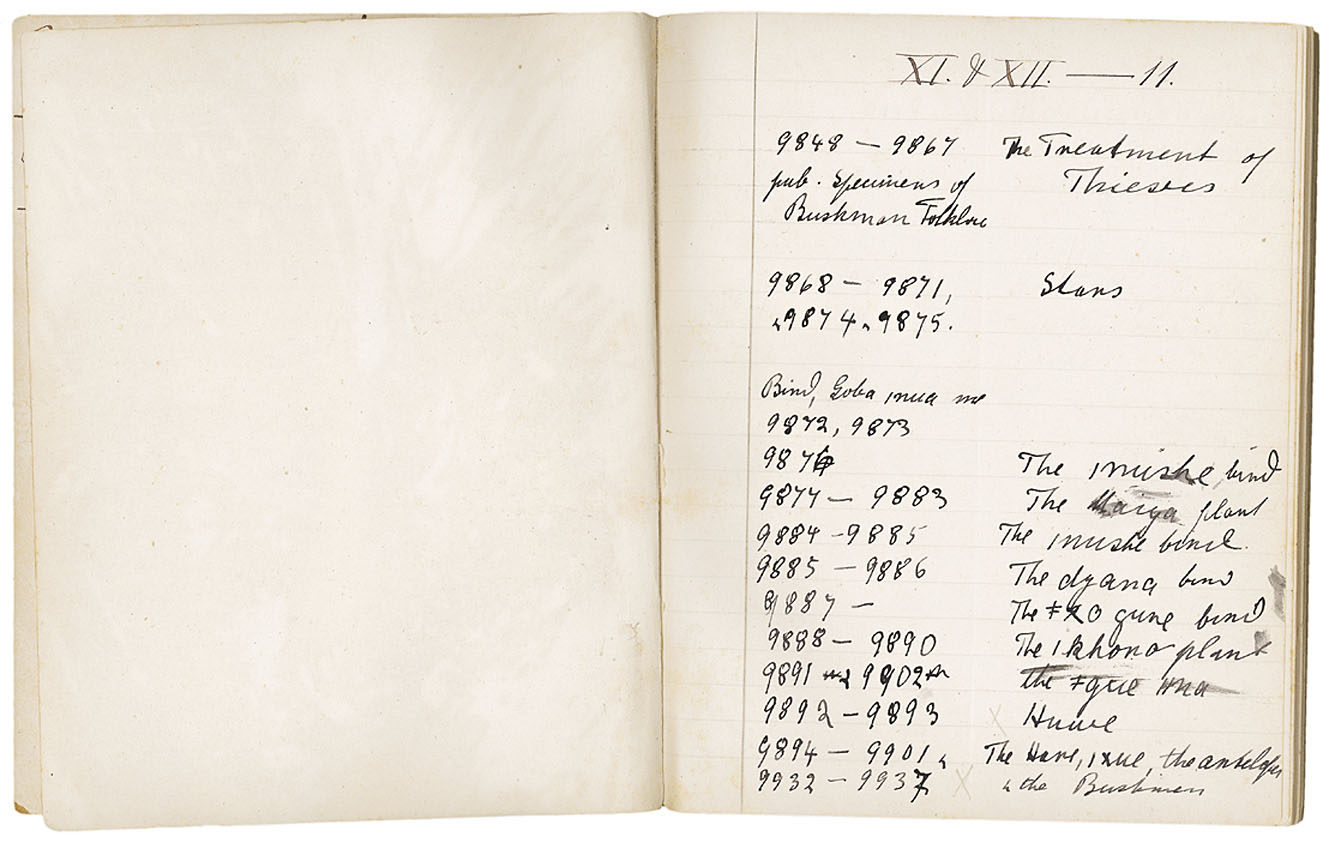 XI. & XII. — 11.
9848 — 9867 The Treatment of
pub. Specimens of Thieves
Bushman Folklore
9868 — 9871, Stars
& 9874 & 9875.
Bird, Goba ǀnua me
9872, 9873
9876 The ǀnishe bird
9877 — 9883 The plant
9884 - 9885 The ǀnishe bird.
9885 — 9886 The dyana bird
9887 — The gune bird
9888 — 9890 The ǀkhono plant
9891 9902 the ǂgue ǁna
9892 — 9893 X Huwe
9894 — 9901 & The Hare, ǀxue, the antelopes
9932 — 9937 X & the Bushmen